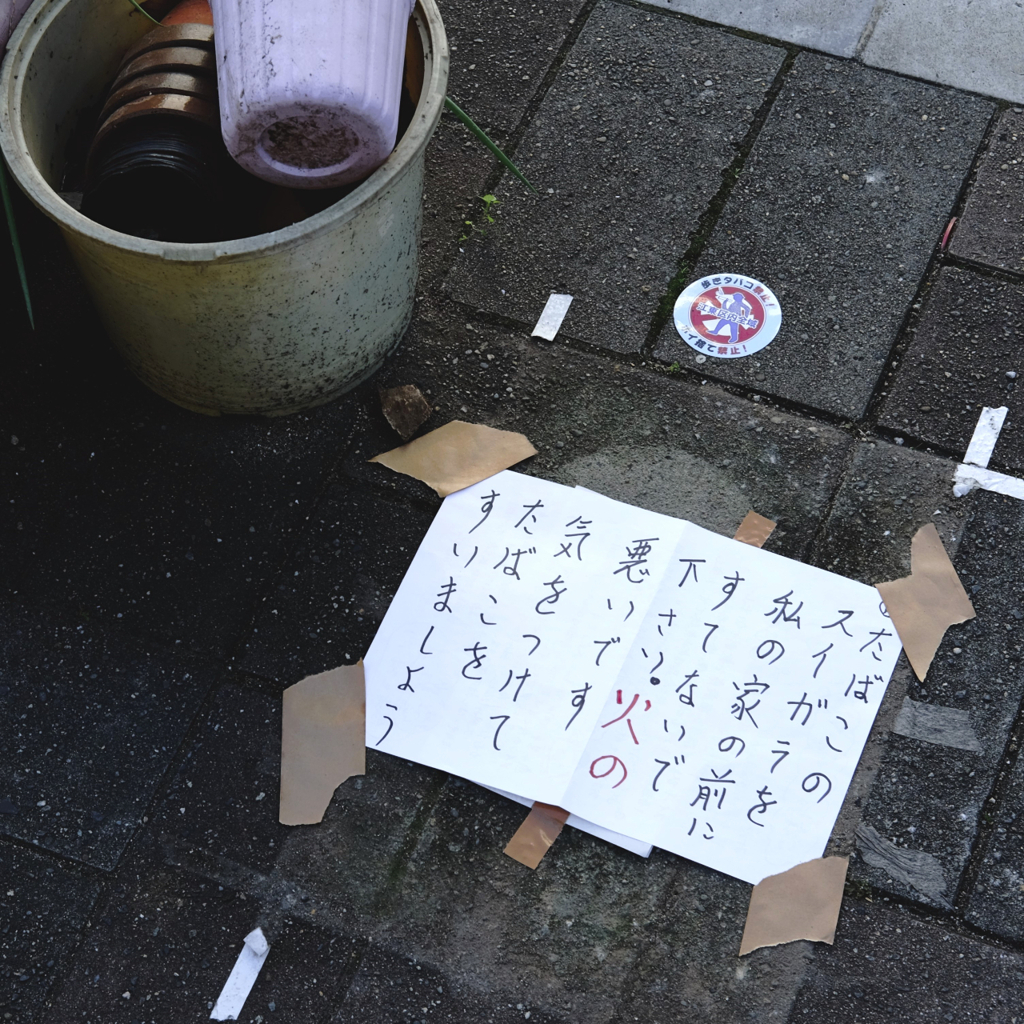 歩きタバコ禁止！
江東区内全域
イ捨て禁止！
たばこの
スイガラを
私の家の前に
すてないで
下さい。火の
悪いです
気をつけて
たばこを
すいましょう